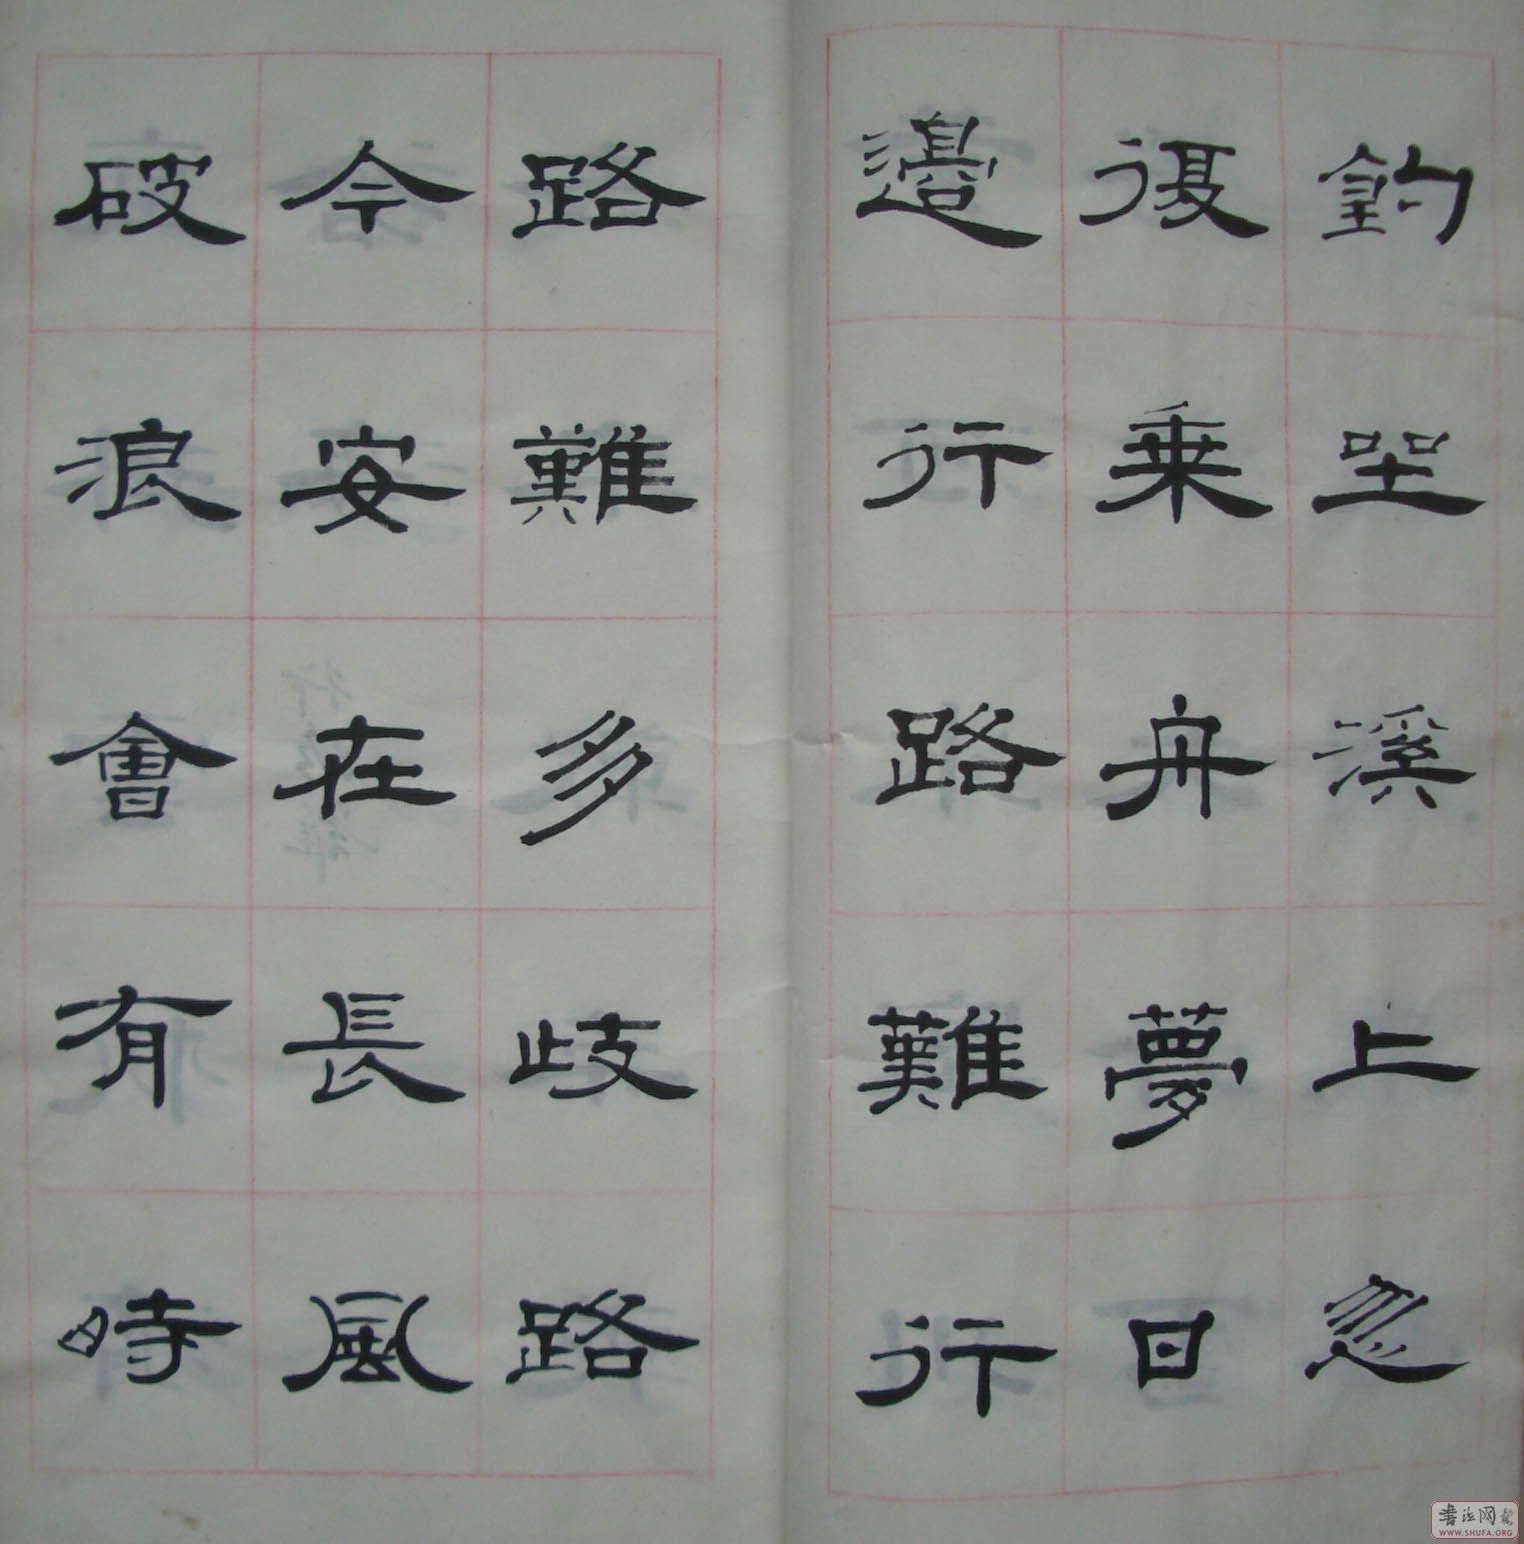 釣坐溪上忽
復乗舟夢日
邊行路難行
路難多歧路
今安在長風
破浪會有時
書法网
WWW.SHUFA.ORG